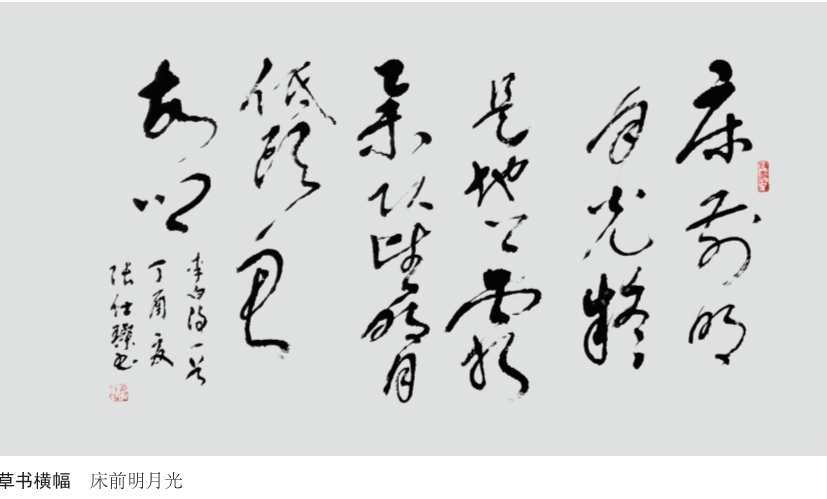 床前明
月光疑
是地上霜
举头望明月
低头思
故乡
李白诗一首
丁酉夏
张仕 书
草书横幅 床前明月光